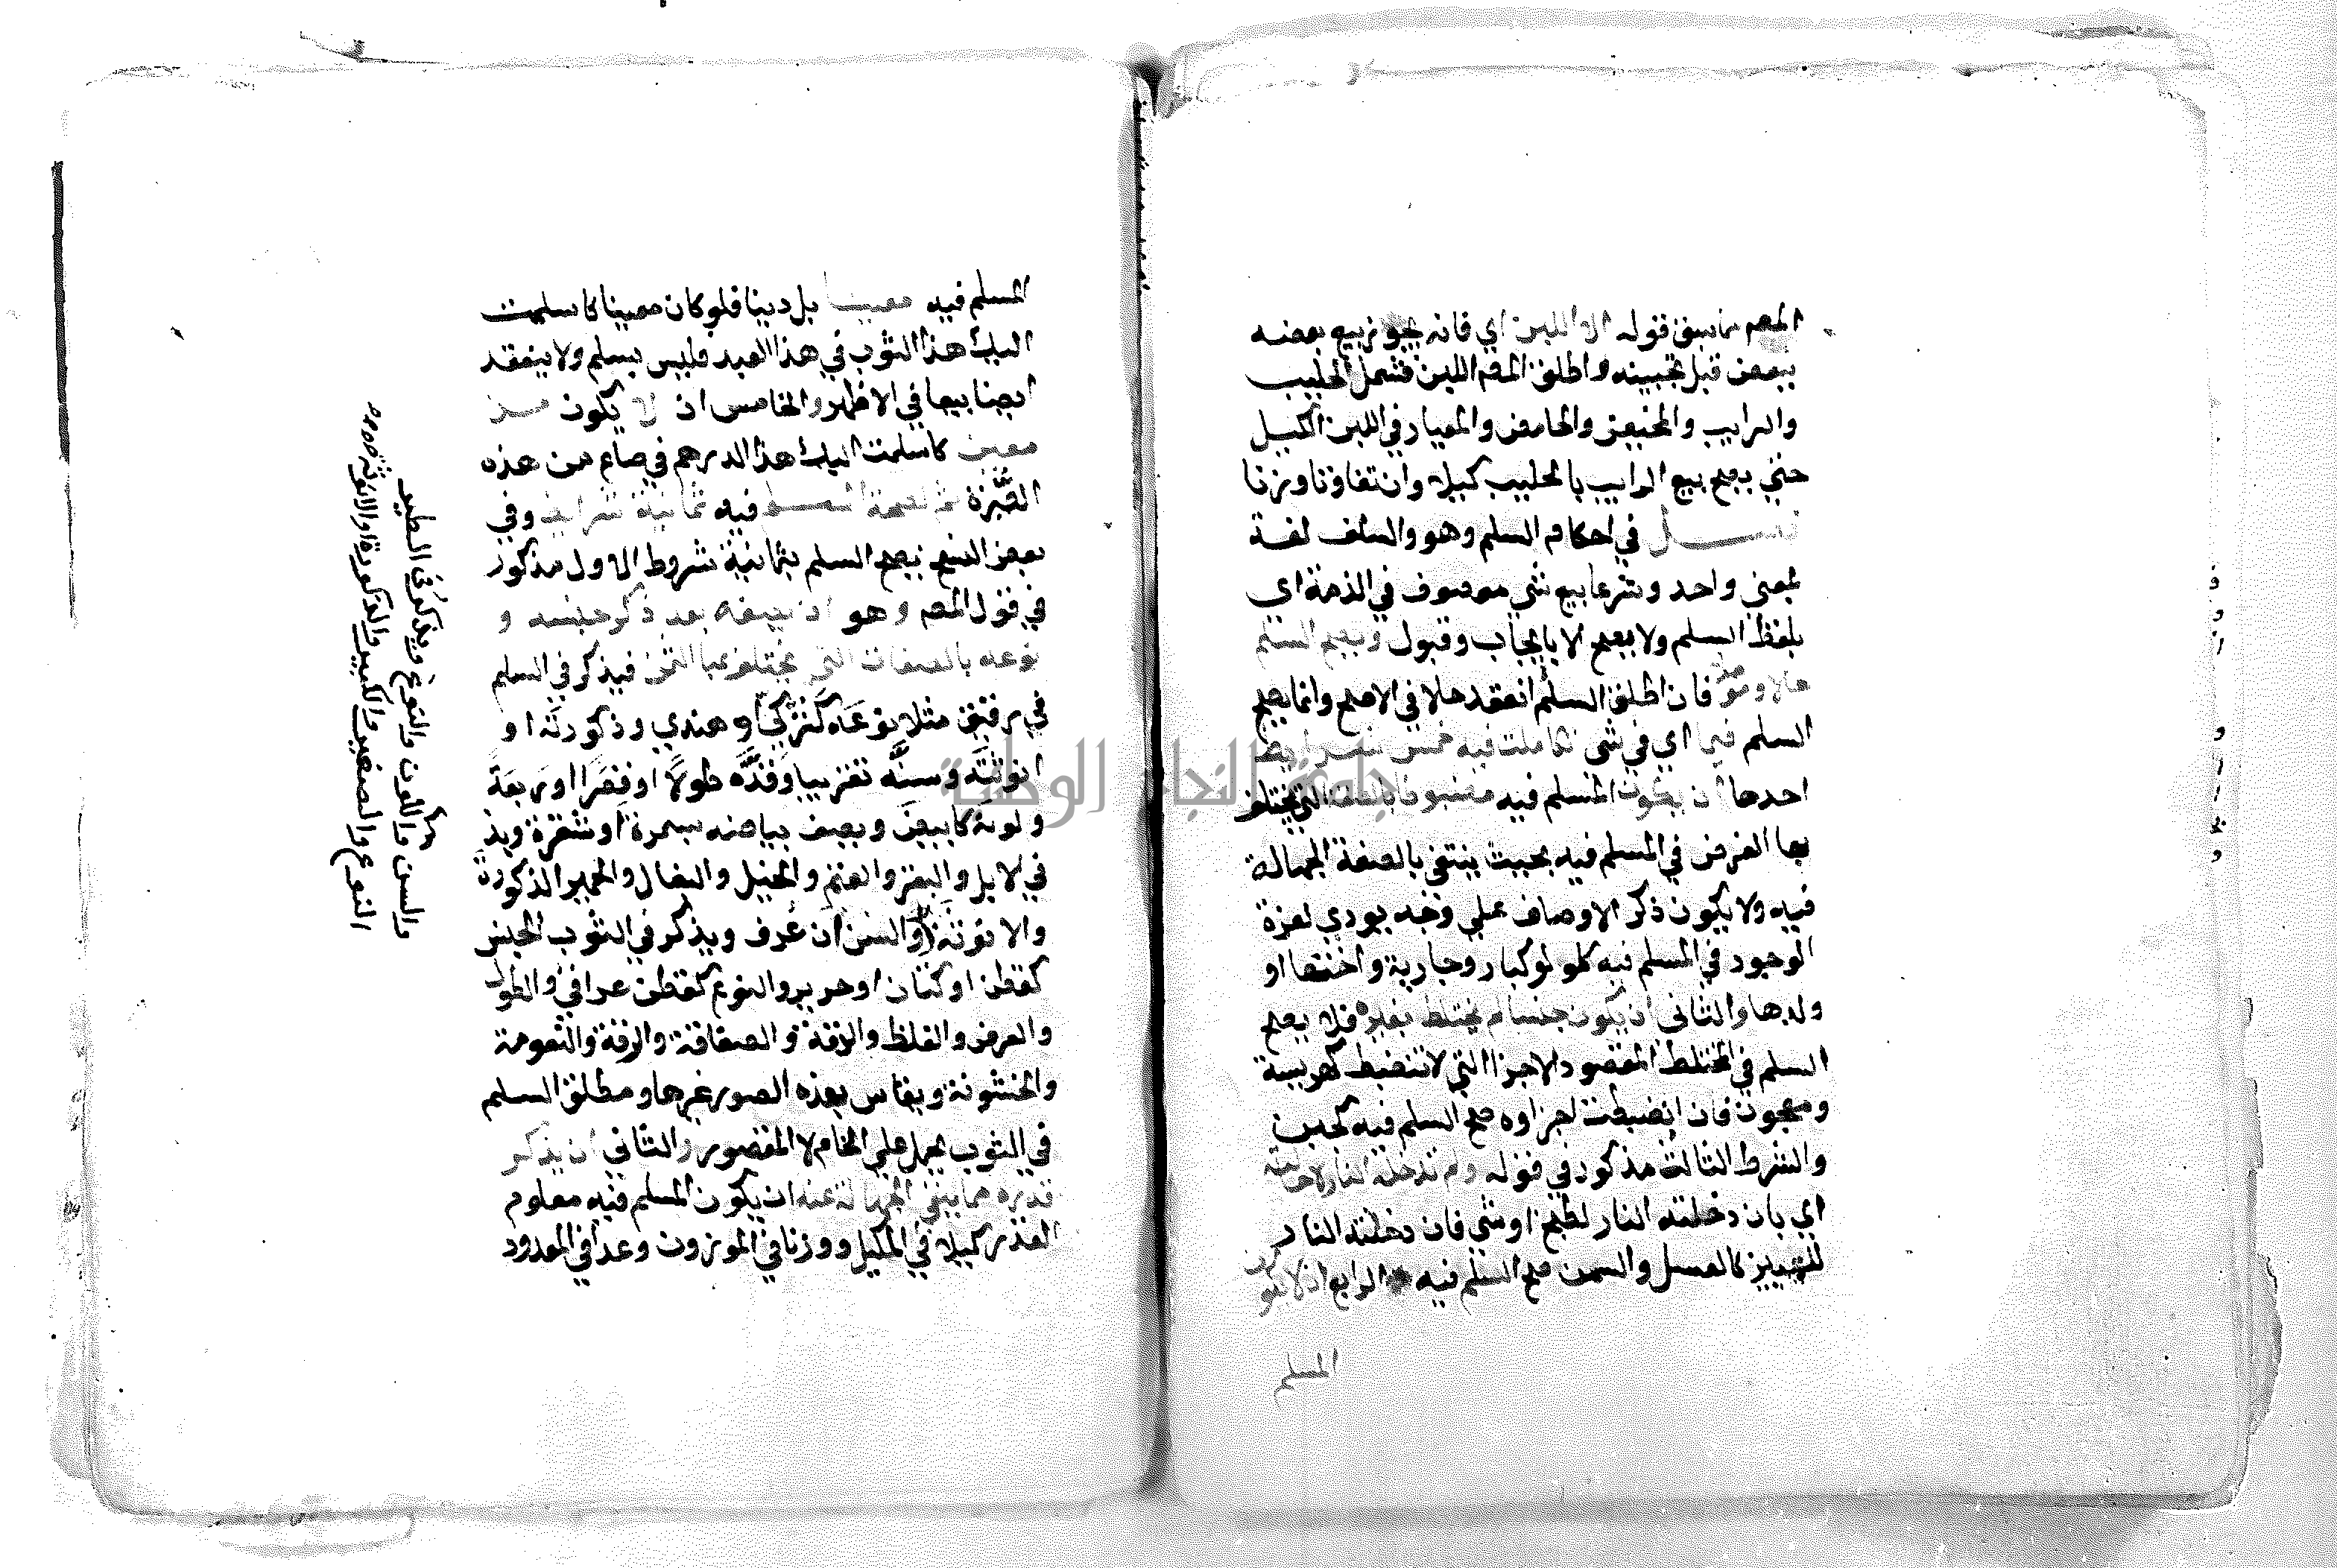 المصم مما سبق قوله الا اللبن اي فانه يجوز بيع بعضه
ببعض قبل تجبينه واطلق المصم اللبن فشمل الحليب
والرايب والمخيض والحامض والمعيار في اللبن الكيل
حتي يصح بيع الرايب بالحليب كيلا وان تفاوتا وزنا
فصل في احكام السلم وهو والسلف لغة
بمعني واحد وشرعا بيع شي موصوف في الذمة اي
بلفظ السلم ولا يصح الا بايجاب وقبول ويصح السلم
حالا ومؤجلا فان اطلق السلم انعقد حالا في الاصح وانما يصح
السلم فيما اي في شي تكاملت فيه خمس شرايط
احدها ان يكون المسلم فيه مضبوطا بالصفة التي يختلف
بها الغرض في المسلم فيه بحيث ينتفي بالصفة الجهالة
فيه ولا يكون ذكر الاوصاف علي وجه يودي لعزة
الوجود في المسلم فيه كلولو كبار وجارية واختها او
ولدها والثاني ان يكون جنسا لم يختلط بغيره فلا يصح
السلم في المختلط المقصود الاجزا التي لا تنضبط كهريسة
ومعجون فان انضبطت اجزاوه صح السلم فيه كجبن
والشرط الثالث مذكور في قوله ولم تدخله النار لاحالته
اي بان دخلته النار لطبخ او شي فان دخلته النار
للتمييز كالعسل والسمن صح السلم فيه والرابع ان لا يكون
المسلم
المسلم فيه معينا بل دينا فلو كان معينا كاسلمت
اليك هذا الثوب في هذا العبد فليس بسلم ولا ينعقد
ايضا بيعا في الاظهر والخامس ان لا يكون من
معين كاسلمت اليك هذا الدرهم في صاع من هذه
الصُّبرة ثم لصحة السلم فيه ثمانية شرايط وفي
بعض النسخ ويصح السلم بثمانية شروط الاول مذكور
في قول المصم وهو ان يصفه بعد ذكر جنسه و
نوعه بالصفات التي يختلف بها الثمن فيذكر في السلم
في رقيق مثلا نوعَه كتركي او هندي وذكورته او
انوثته وسنَّه تقريبا وقدَّه طولًا او قصَرا او ربعَة
ولونه كابيض ويصف بياضه بسمرة او شقرة ويذكر
في الابل والبقر والغنم والخيل والبغال والحمير الذكورة
والانوثة والسن ان عُرف ويذكر في الثوب الجنس
كقطن او كتان او حرير والنوع كقطن عراقي والطول
والعرض والغلظ والدقة والصفاقة والرقة والنعومة
والخشونة ويقاس بهذه الصور غيرها ومطلق السلم
في الثوب يحمل علي الخام لا المقصور والثاني ان يذكر
قدره مما ينفي الجهالة عنه ان يكون المسلم فيه معلوم
القدر كيلا في المكيل ووزنا في الموزون وعدا في المعدود
والسن واللون والنوع ويذكر في الطير
النوع والصغير والكبير والذكورة والانوثة